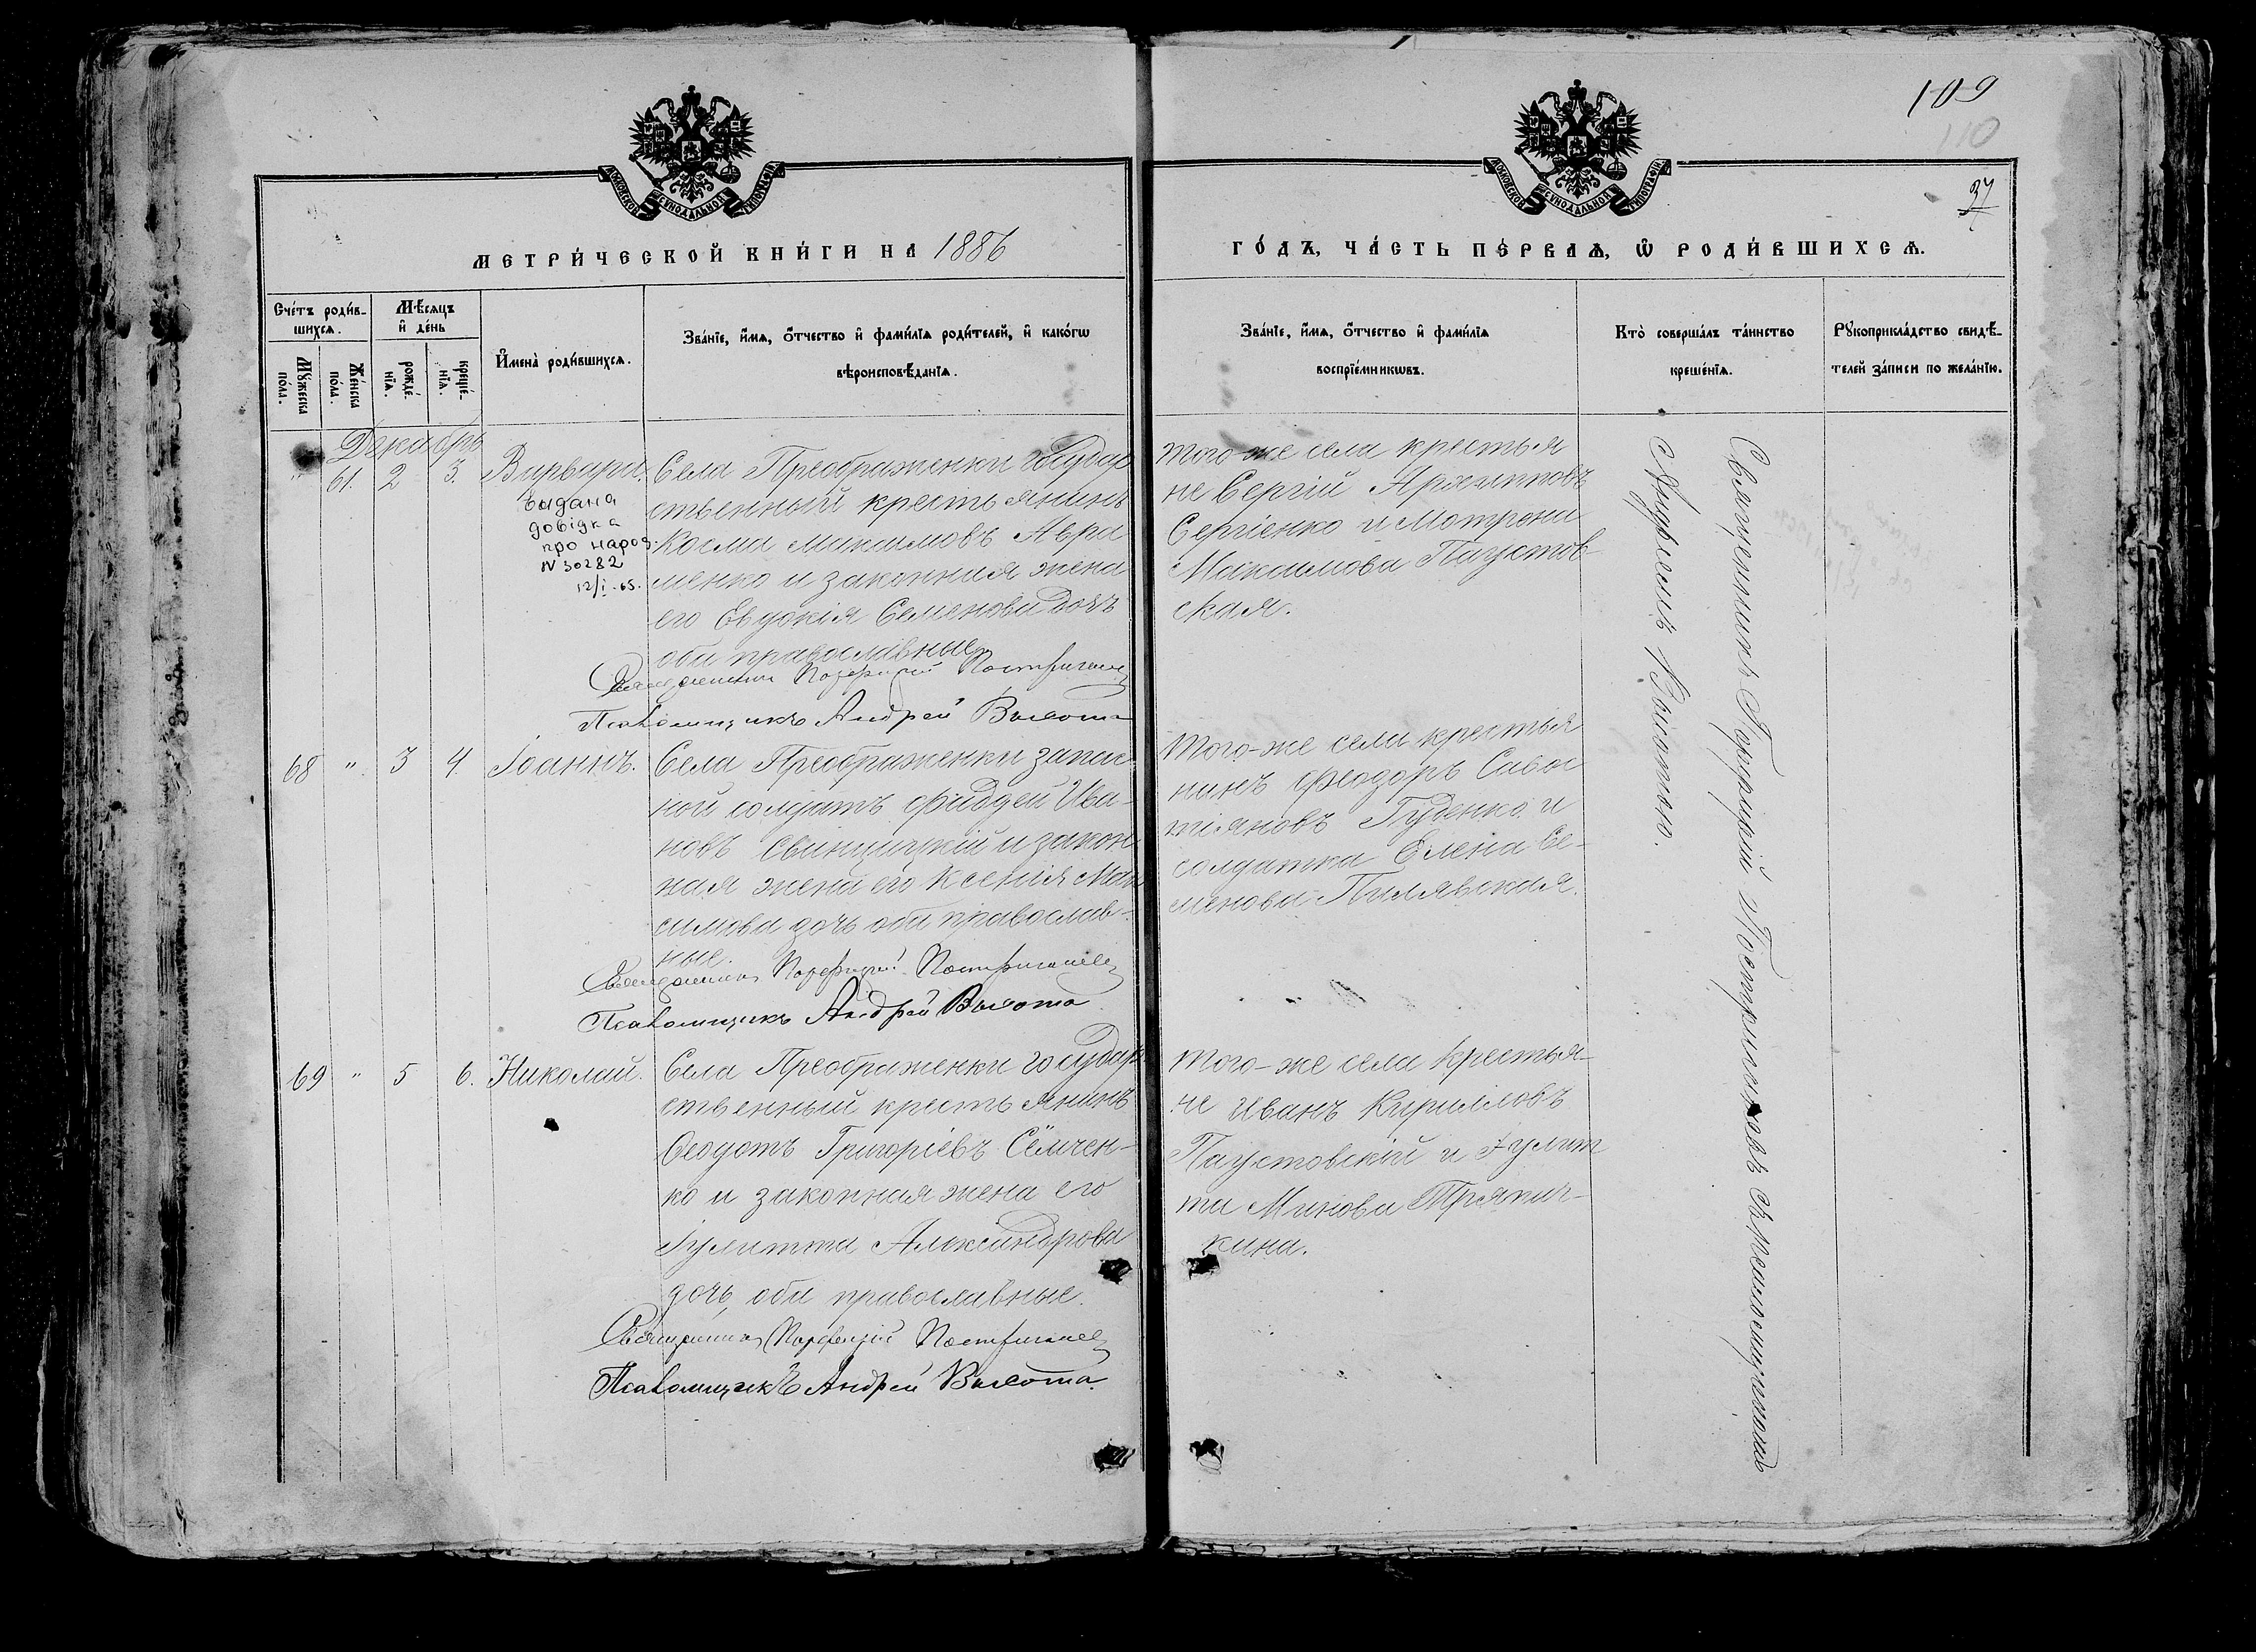 109
110
37
МОСКОВСКОЙ СѴНОДАЛЬНОЙ ТИПОГРАФІИ
МОСКОВСКОЙ СѴНОДАЛЬНОЙ ТИПОГРАФІИ
МЕТРИ́ЧЕСКОЙ КНИ́ГИ НА 1886
ГО́ДЪ, ЧА́СТЬ ПЕ́РВАѦ, Ѡ҆ РОДИ́ВШИХСѦ.
Сче́тъ роди́в-
шихсѧ.
Мꙋ́жеска
по́ла.
Же́нска
по́ла.
Мѣ́сѧцъ
и҆ де́нь
рожде́
нїѧ.
креще́-
нїѧ.
И҆мена̀ роди́вшихсѧ.
Зва́нїе, и҆́мѧ, ѻ҆́тчество и҆ фами́лїѧ роди́телей, и҆ како́гѡ
вѣроисповѣ́данїѧ.
Зва́нїе, и҆́мѧ, ѻ҆́тчество и҆ фами́лїѧ
воспрїе́мникѡвъ.
Кто̀ соверша́лъ та́инство
креще́нїѧ.
Рꙋкоприкла́дство свидѣ́-
телей за́писи по жела́нїю.
Декабрь
" 61. 2 3. Варвара.
выдана
довідка
про народ.
N 30282
12/I-65.
Села Преображенки государ
ственный крестьянинъ
Косма Максимовъ Авра
менко и законная жена
его Евдокія Семенова дочь
оба православные
Священникъ Порфирій Постригачевъ
Псаломщикъ Андрей Высота
того-же села крестья
не Сергій Архиповъ
Сергіенко и Мотрона
Максимова Паустов-
ская.
68 " 3 4. Іоаннъ.
Села Преображенки запас
ной солдатъ Фаддей Ива-
новъ Свинцицкій и закон
ная жена его Ксенія Мак
симова дочь оба православ-
ные.
Священникъ Порфирій Постригачевъ
Псаломщикъ Андрей Высота
того-же села крестья
нинъ Феодоръ Савос
тіяновъ Гуденко и
солдатка Елена Се-
менова Пилявская.
69 " 5 6. Николай.
Села Преображенки государ
ственный крестьянинъ
Феодотъ Григоріевъ Сёмчен-
ко и законная жена его
Іулитта Александрова
дочь, оба православные.
Священникъ Порфирій Постригачевъ
Псаломщикъ Андрей Высота.
того-же села крестья-
не Иванъ Кирилловъ
Паустовскій и Іулит
та Минова Тряпич-
кина.
Священникъ Порфирій Постригачевъ съ псаломщикомъ
Андреемъ Высотою.